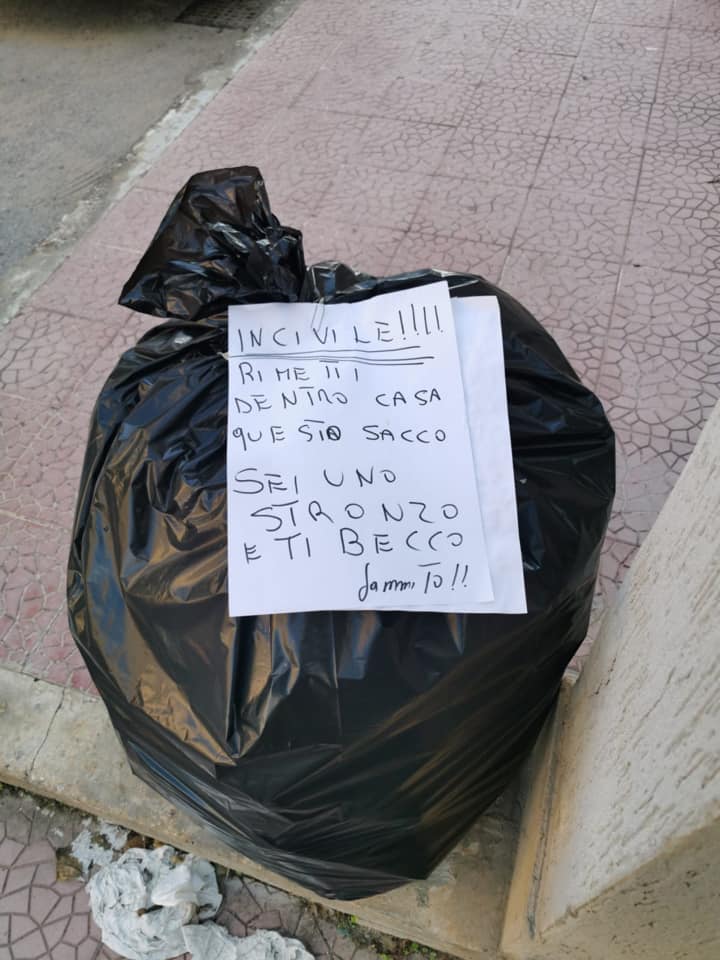 INCIVILE!!!!
RIMETTI
DENTRO CASA
QUESTO SACCO
SEI UNO
STRONZO
E TI BECCO